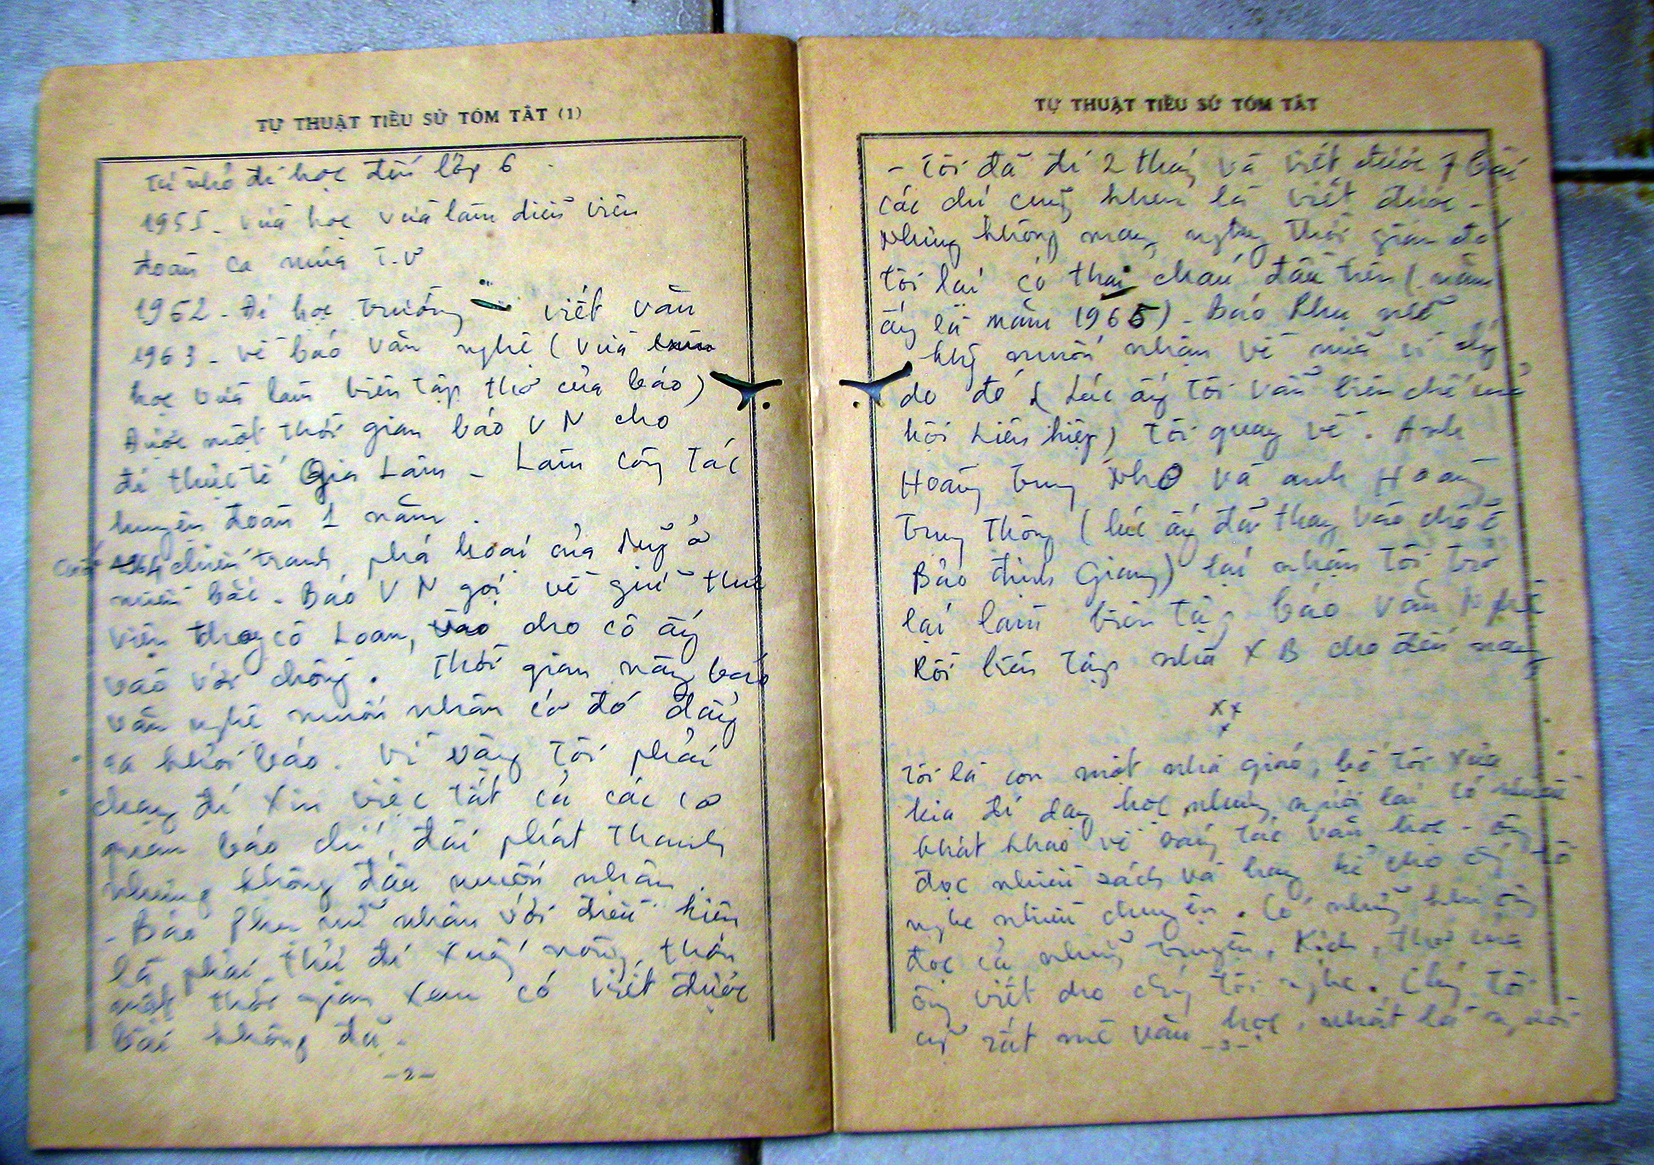 TỰ THUẬT TIỂU SỬ TÓM TẮT (1)
Từ nhỏ đi học đến lớp 6.
1955 - vừa học vừa làm diễn viên
đoàn ca múa T.Ư
1962 - Đi học trường viết văn
1963 - về báo văn nghệ (vừa
học vừa làm biên tập thơ của báo)
Được một thời gian báo VN cho
đi thực tế Gia Lâm - Làm công tác
huyện đoàn 1 năm.
Cuối 1964 chiến tranh phá hoại của Mỹ ở
miền Bắc - Báo VN gọi về giữ thư
viện thay cô Loan, cho cô ấy
vào với chồng. Thời gian này báo
văn nghệ muốn nhân cớ đó đẩy
ra khỏi báo. Vì vậy tôi phải
chạy đi xin việc tất cả các cơ
quan báo chí, đài phát thanh
nhưng không đâu muốn nhận.
- Báo Phụ nữ nhận với điều kiện
là phải thử đi xuống nông thôn
một thời gian xem có viết được
bài không đã.
-2-
TỰ THUẬT TIỂU SỬ TÓM TẮT
- Tôi đã đi 2 tháng và viết được 7 bài
các chị cũng khen là viết được -
Nhưng không may, ngay thời gian đó
tôi lại có thai cháu đầu tiên (năm
ấy là năm 1965) - Báo Phụ nữ
không muốn nhận về nữa vì lý
do đó (Lúc ấy tôi vẫn biên chế
hội Liên hiệp) tôi quay về. Anh
Hoàng Trung Nho và anh Hoàng
Trung Thông (lúc ấy đã thay vào chỗ
Bảo Định Giang) lại nhận tôi trở
lại làm biên tập báo Văn Nghệ
Rồi biên tập nhà XB cho đến nay
x x
x
Tôi là con một nhà giáo, bố tôi xưa
kia đi dạy học nhưng người lại có nhiều
khát khao về sáng tác văn học - ông
đọc nhiều sách và hay kể cho chúng tôi
nghe nhiều chuyện. Có những khi ông
đọc cả những truyện, kịch, thơ của
ông viết cho chúng tôi nghe. Chúng tôi
cũng rất mê văn học, nhất là
-3-